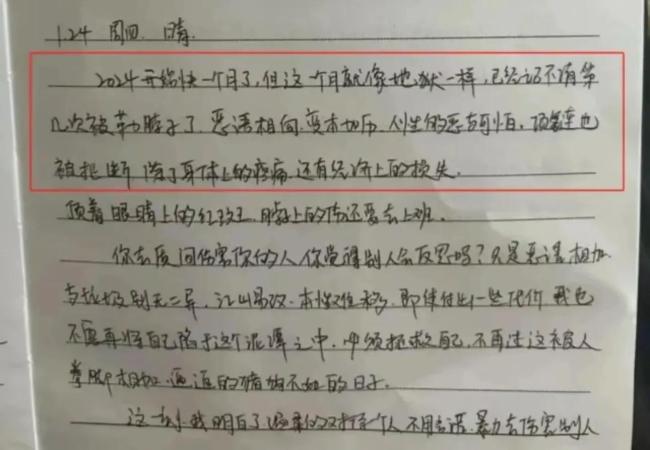 1.24 周四. 晴.
2024开始快一个月了,但这一个月就像地狱一样,已经记不清第
几次被勒脖子了.恶语相向.变本加厉.人性的恶真可怕.项链也
被扯断 除了身体上的疼痛.还有经济上的损失.
顶着眼睛上的红斑.脖子上的伤还要去上班.
你去质问伤害你的人你觉得别人会反思吗?只是恶语相加
与垃圾别无二异.江山易改.本性难移.即使付出一些代价 我也
不要再将自己陷于这个泥潭之中.必须拯救自己.不再过这被人
拳脚相加.逼迫的猪狗不如的日子.
这一刻我明白了 温柔的对待个人 不用言语.暴力去伤害别人